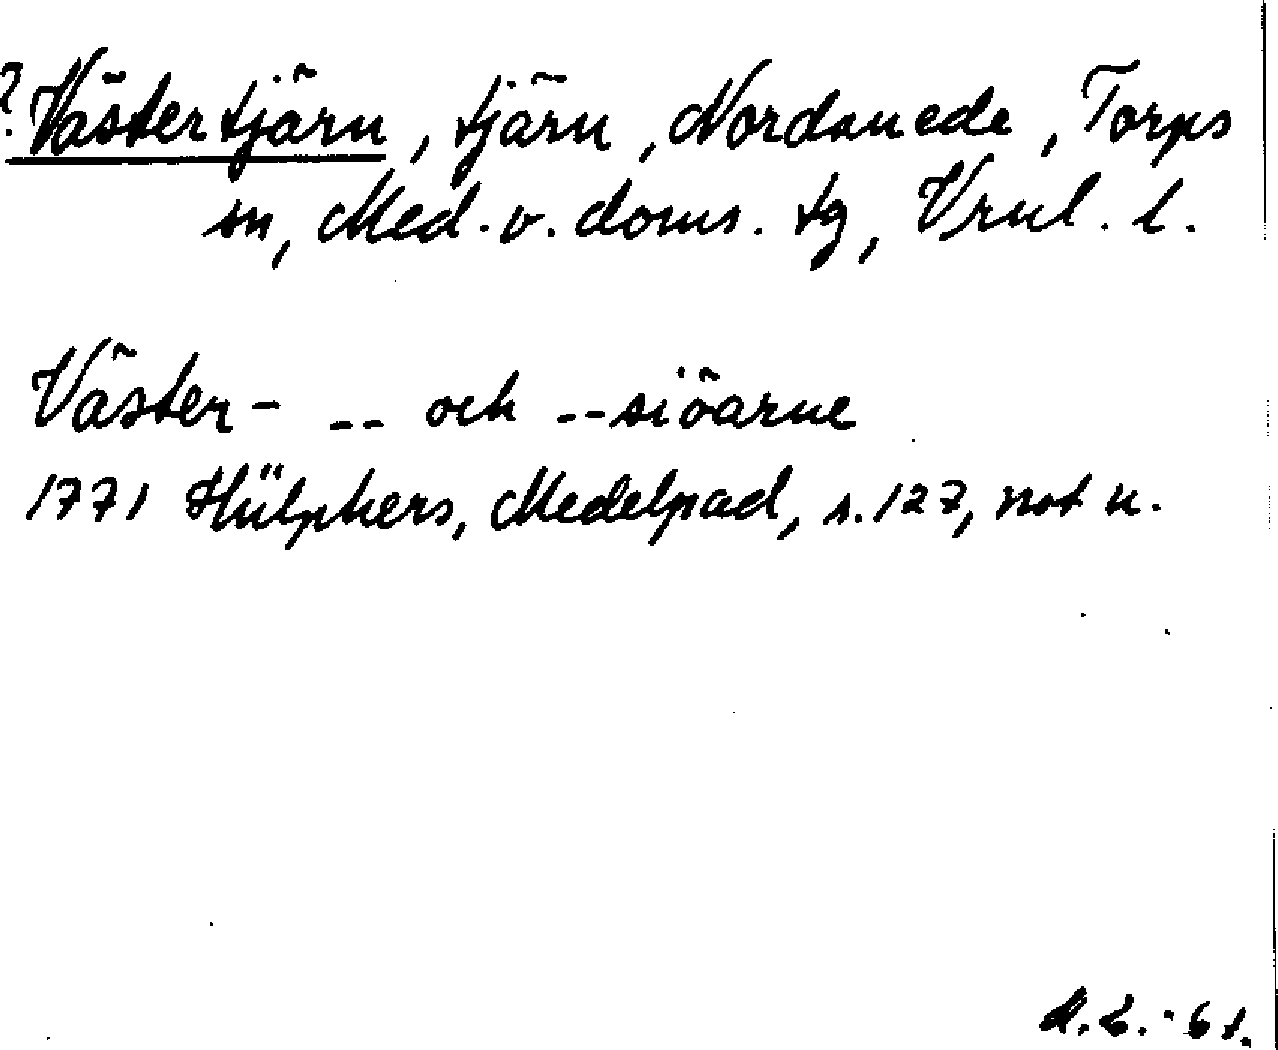 ? Västertjärn, tjärn, Nordanede, Torps
sn, Med. v. doms. tg, Vrnl. l.
Väster- -- och --siöarne
1771 Hülphers, Medelpad, s. 127, not u.
61.